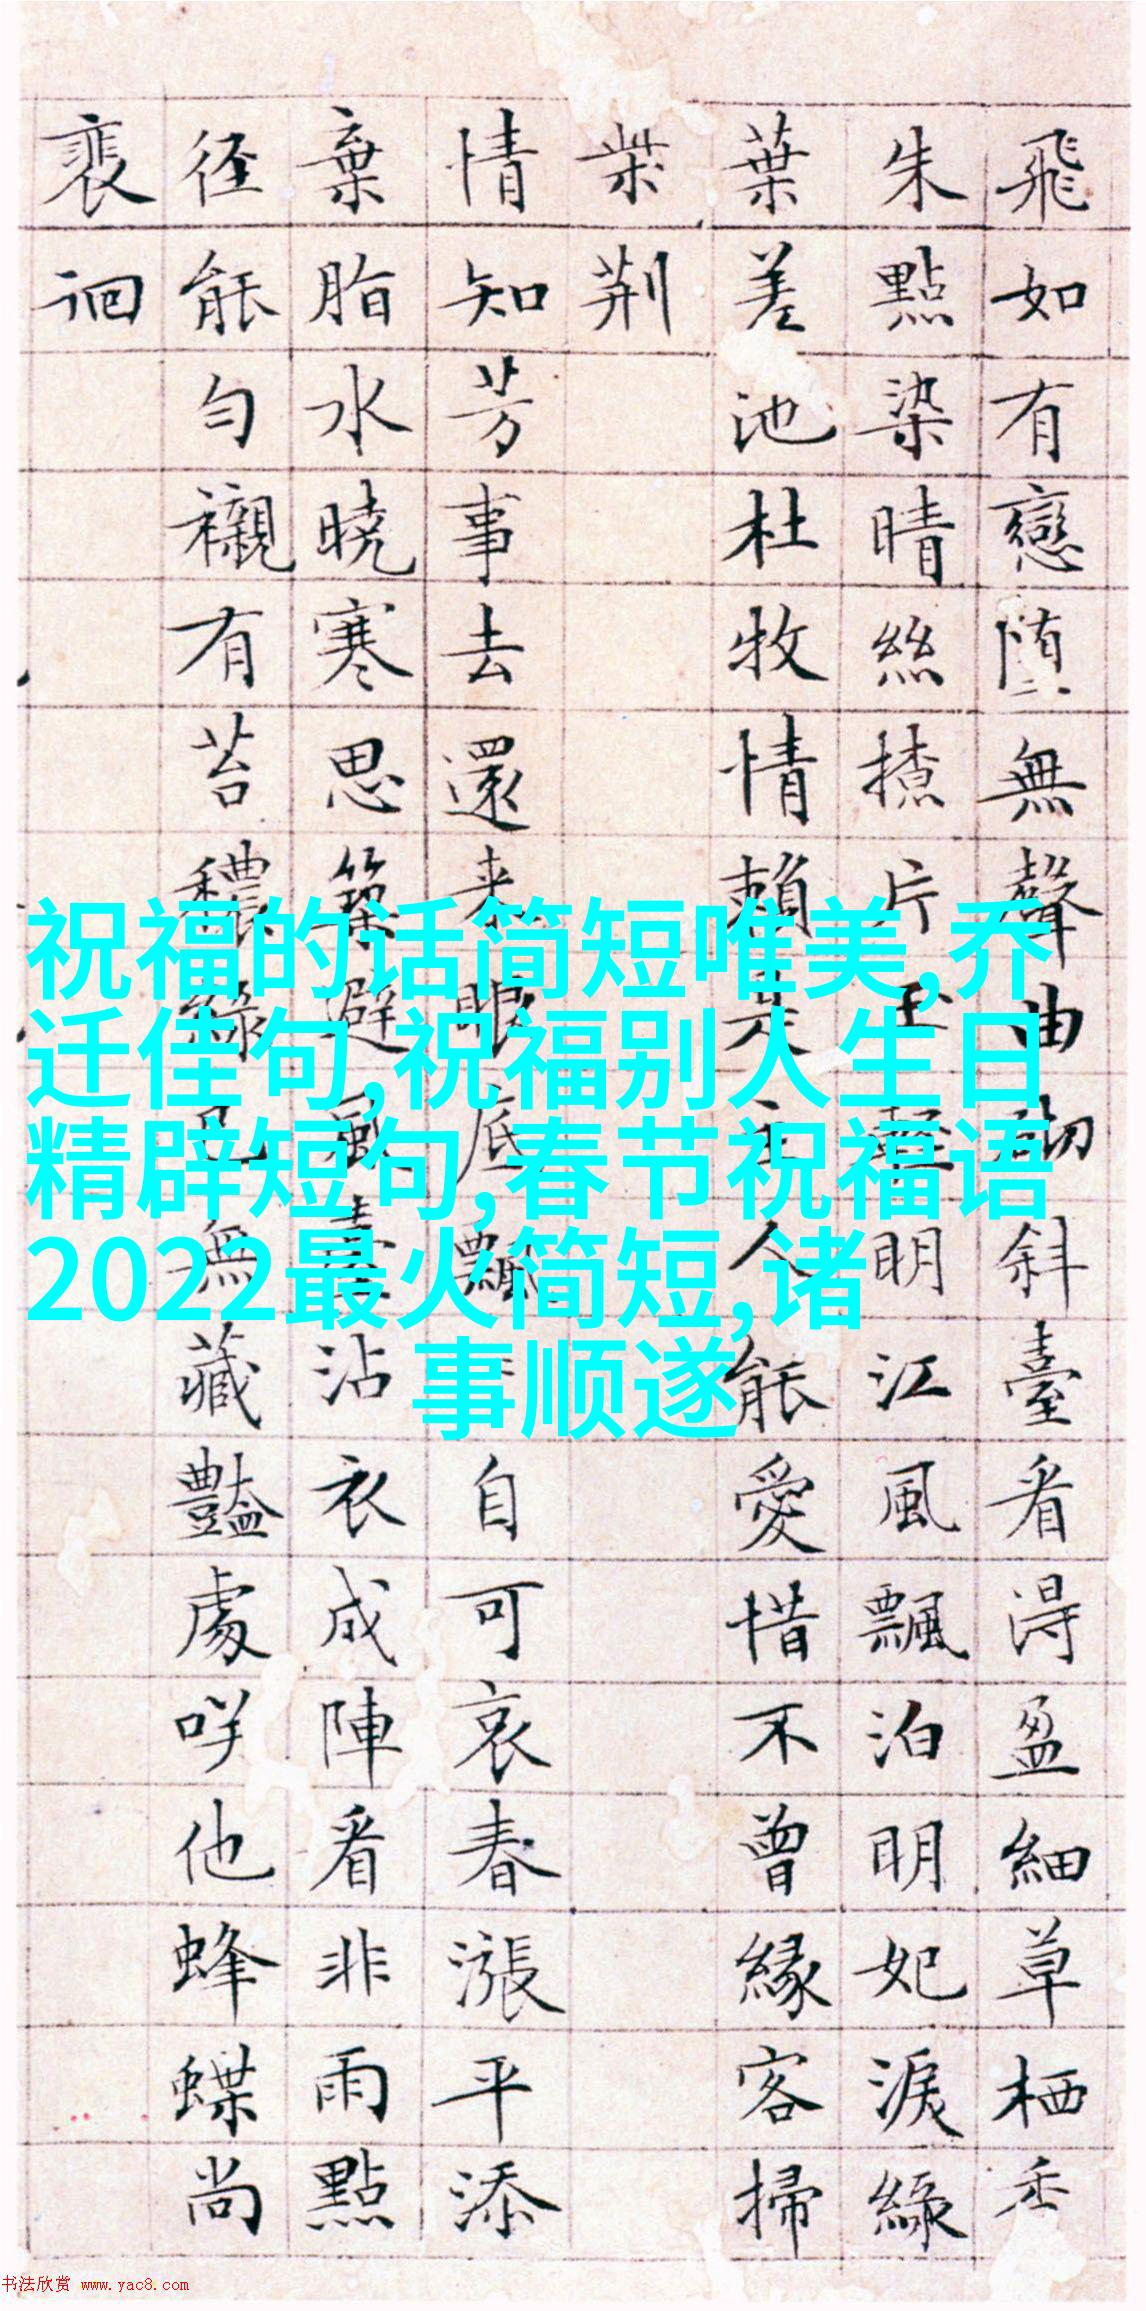 祝福的话简短唯美,乔
迁佳句,祝福别人生日
精辟短句,春节祝福语
2022最火简短,诸
事顺遂
飛如有戀堕無聲曲砌斜臺看得盈細草栖香
朱點染晴絲揸片玉明江風飄泊明妃淚綠
葉差池杜牧情賴是主人能愛惜不曾緣客掃
柴荆
情知芳事去還来眼底飄自可哀春漲平添
棄脂水曉寒思築避風臺沾衣成陣看非雨點
径能勻襯有苔穠緑已無藏豔處咲他蜂蝶尚
裵徊
书法欣赏 www.yac8.com